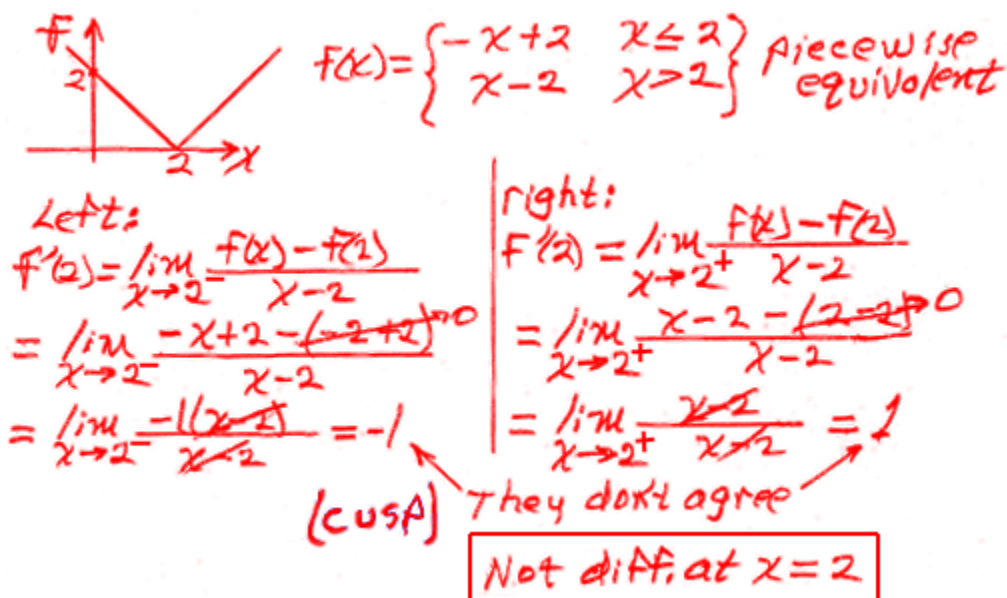 F
2
2 x
f(x) = { -x+2 x≤2
x-2 x>2 } piecewise equivalent
Left:
f'(2) = lim x→2⁻ (f(x) - f(2)) / (x-2)
= lim x→2⁻ (-x+2-(-2+2)→0) / (x-2)
= lim x→2⁻ (-1(x-2)) / (x-2) = -1
right:
F'(2) = lim x→2⁺ (f(x) - f(2)) / (x-2)
= lim x→2⁺ (x-2-(2-2)→0) / (x-2)
= lim x→2⁺ (x-2) / (x-2) = 1
(cusp) They don't agree
Not diff. at x = 2